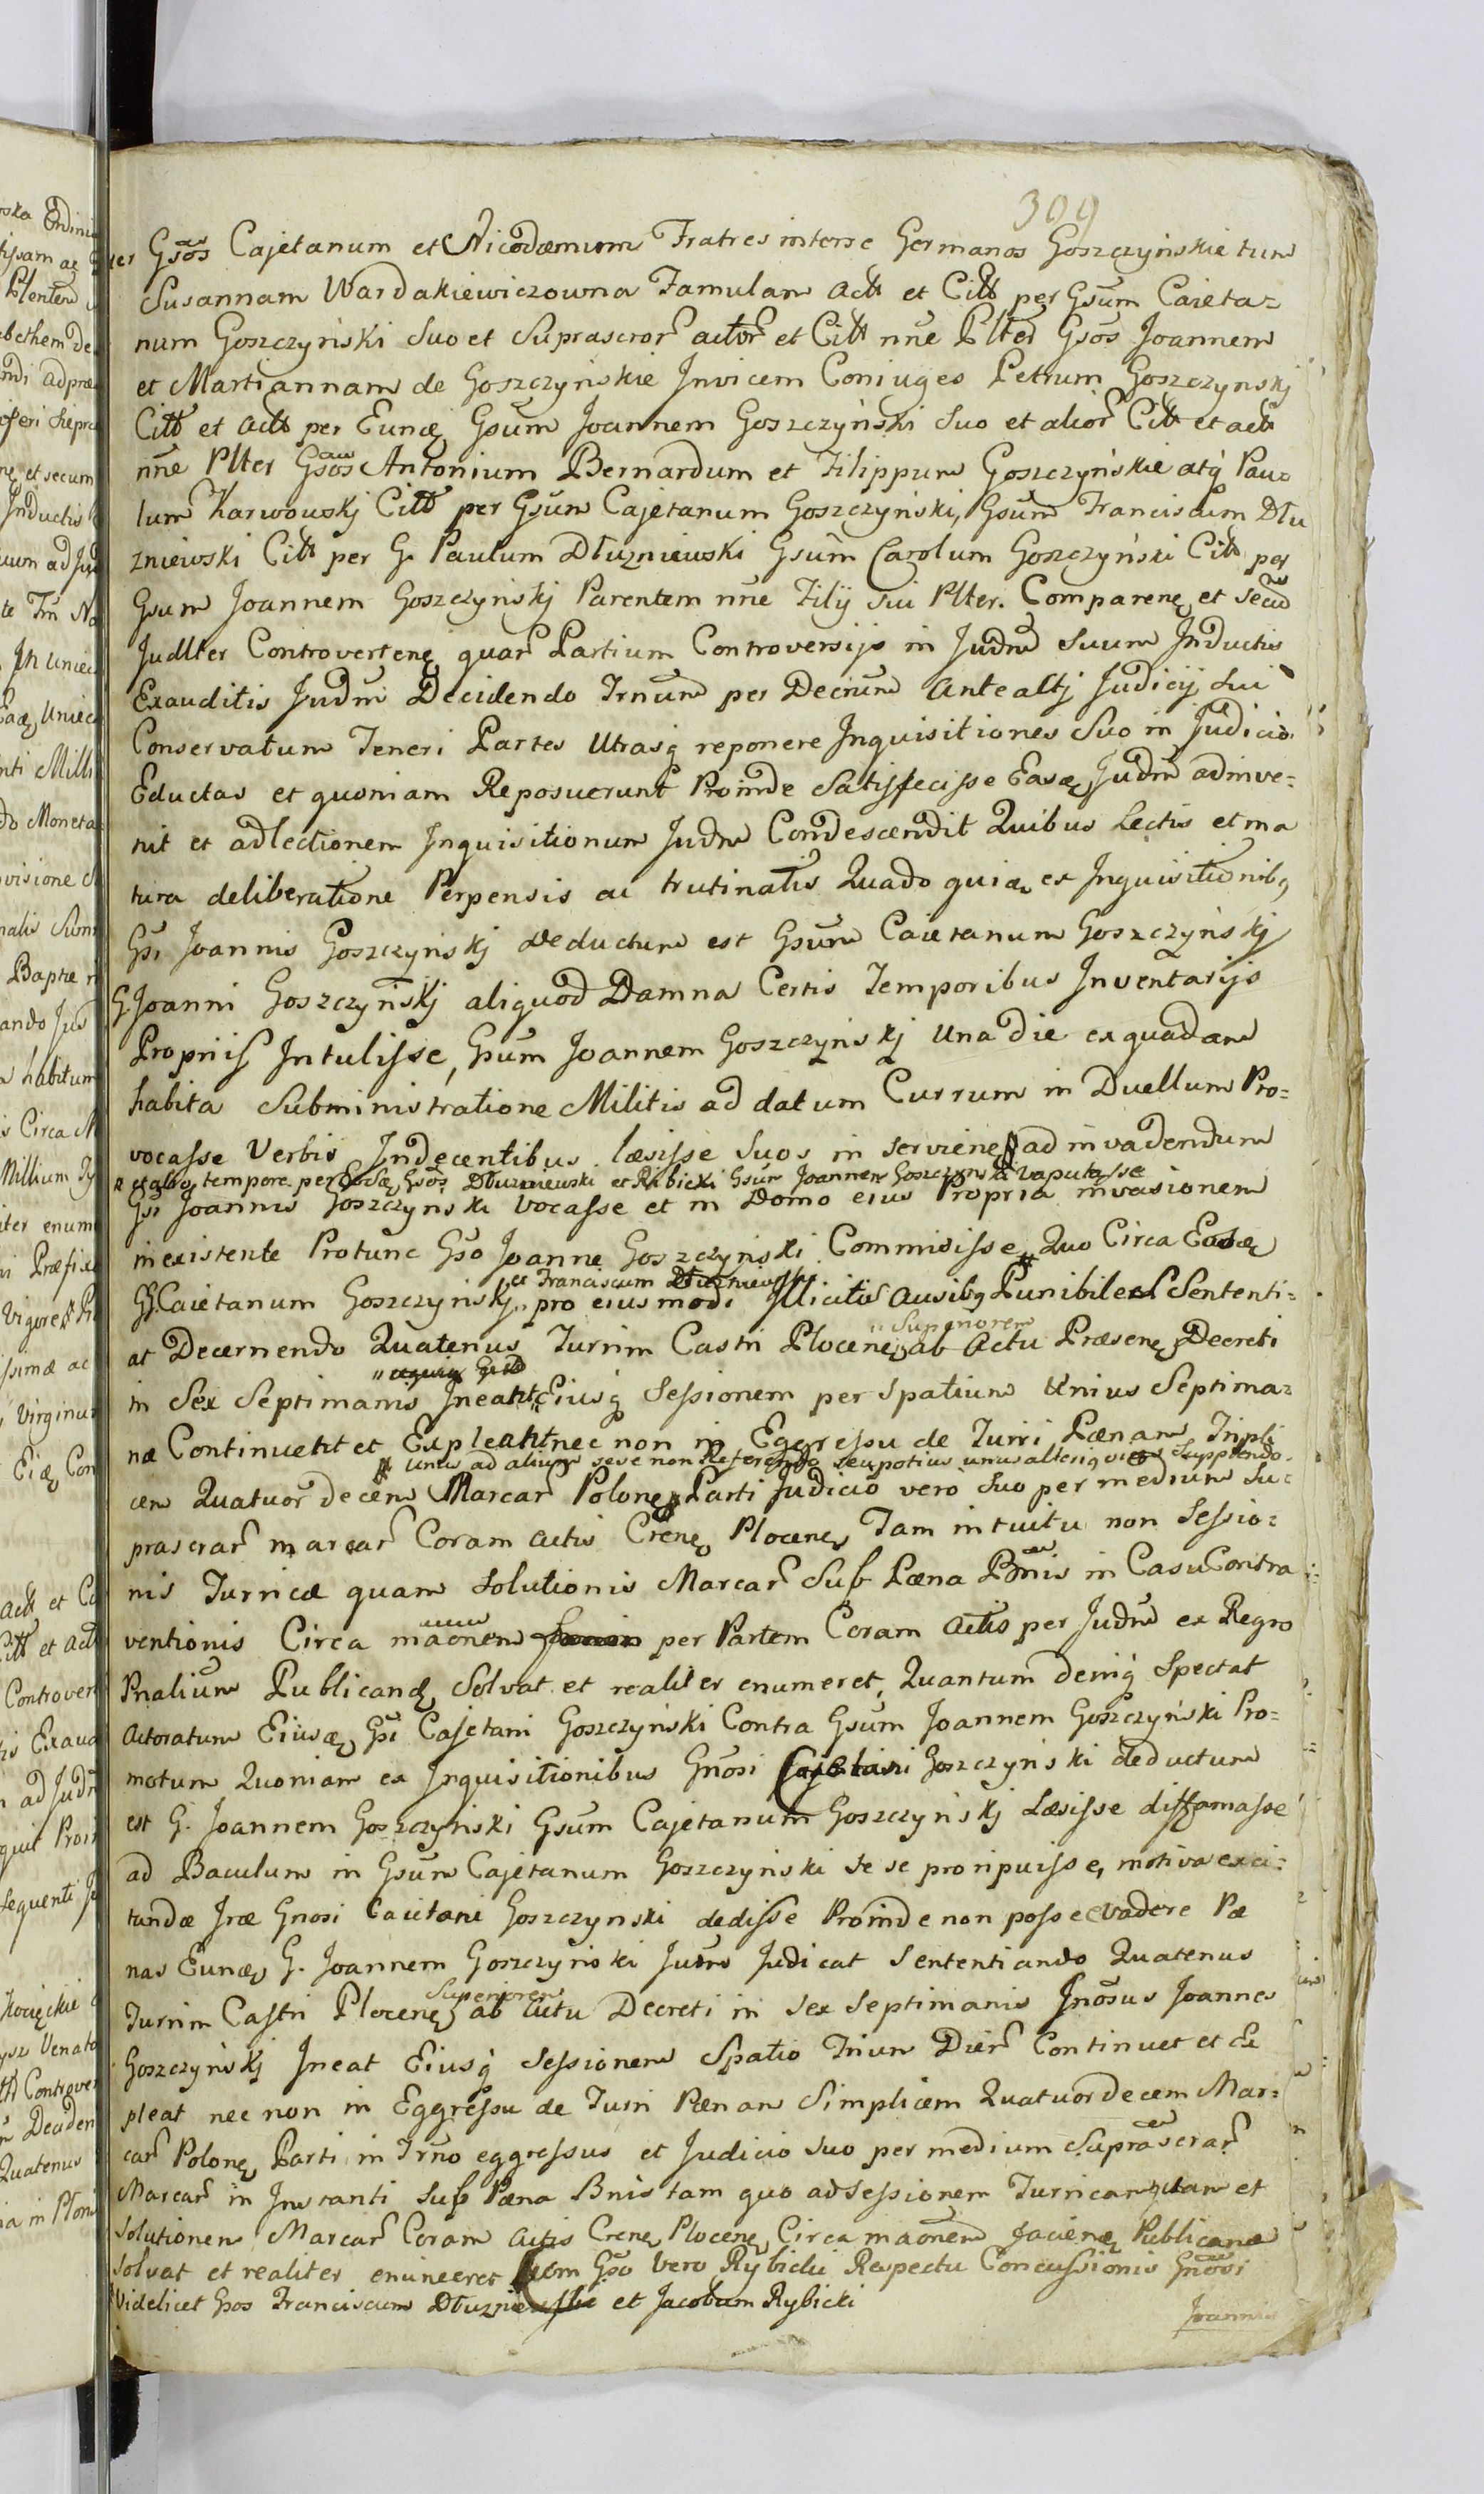 309
Gsos Cajetanum et Nicodæmum Fratres interse Germanos Goszczyńskie tum
Susannam Wardakiewiczowna Famulam Actt et Citt per Gsum Caieta=
num Goszczyński Suo et Suprascror actor et Citt nne Plter Gsos Joannem
et Mariannam de Goszczyńskie Invicem Coniuges Petrum Goszczynskj
Citt et Actt per Eunq Gsum Joannem Goszczyński Suo et alior Citt et actt
nne Plter Gsos Antonium Bernardum et Filippum Goszczyńskie atq Pau=
lum Karwowskj Citt per Gsum Cajetanum Goszczyński, Gsum Franciscum Dłu
zniewski Citt per G. Paulum Dłuzniewski Gsum Carolum Goszczyński Citt per
Gsum Joannem Goszczyńskj Parentem nne Filij sui Plter. Comparenę et secud
Judlter Controvertenę quar Partium Controversijs in Judm Suum Inductis
Exauditis Judm Decidendo Trnum per Decrum Antealtj Judicij Sui
Conservatum Teneri Partes Utrasq reponere Inquisitiones Suo in Judicio
Eductas et quoniam Reposuerunt Proinde Satisfecisse Easę Judm adinve=
nit et ad lectionem Inquisitionum Judm Condescendit Quibus Lectis et ma
tura deliberatione Perpensis ac trutinatis Quado quia ex Inquisitionibq
Gsi Joannis Goszczyńskj deductum est Gsum Caietanum Goszczyńskj
G Joanni Goszczyńskj aliquod Damna Certis Temporibus Inventarijs
Proprijs Intulisse, Gsum Joannem Goszczyńskj Una die ex quadam
habita Subministratione Militis ad datum Currum in Duellum Pro=
vocasse Verbis Indecentibus læsisse Suos in servienę ad invadendum
et alio tempore per Eosdę Gsos Dłuzniewski et Rybicki Gsum Joannem Goszczynski Vapulasse
Gsi Joannis Goszczynski Vocasse et in Domo eius Propria invasionem
inexistente Protunc Gso Joanne Goszczyński Commisisse, Quo Circa Eosdę
et Franciscum Dłuzniewski
GG. Caietanum Goszczyńskj pro eiusmodi Illicitis Ausibq Punibiles Sententi=
Superiorem
at Decernendo Quatenus Turrim Castri Plocenę ab Actu Præsenę Decreti
in Sex Septimanis Ineant Eiusq Sessionem per Spatium Unius Septima=
næ Continuent et Expleant nec non in Eggressu de Turri Pænam Tripli
unus ad alium sese non Referendo seu potius unus alteriq vices Supplendo
cem Quatuordecem Marcar Polonę Parti Judicio vero Suo per medium Su=
prascrar marcar Coram Actis Crenę Plocenę Tam intuitu non Sessio=
nis Turricæ quam Solutionis Marcar Sub Pæna Bnnis in Casu Contra
ventionis Circa maonem per Partem Coram Actis per Judm ex Regro
Pnalium Publicandę Solvat et realiter enumeret, Quantum denuq Spectat
Actoratum Eiusdę Gsi Cajetani Goszczyński Contra Gsum Joannem Goszczyński Pro=
motum Quoniam ex Inquisitionibus Gnosi Cajetani Goszczyński deductum
est G. Joannem Goszczyński Gsum Cajetanum Goszczyńskj Læsisse diffamasse
ad Baculum in Gsum Cajetanum Goszczyński se se proripuisse, motiva exci=
tandæ Iræ Gnosi Caietani Goszczynski dedisse Proinde non posse evadere Pæ
nas Eundę G. Joannem Goszczyński Judm Judicat Sententiando Quatenus
Superiorem
Turrim Castri Plocenę ab Actu Decreti in Sex Septimanis Gnosus Joannes
Goszczyńskj Ineat Eiusq Sessionem Spatio Trium Dier Continuet et Ex
pleat nec non in Eggressu de Turri Pænam Simplicem Quatuordecem Mar=
car Polonę Parti in Trno eggressus et Judicio Suo per medium Suprascrar
Marcar in Instanti Sub Pæna Bnis tam quo ad Sessionem Turricam quam et
Solutionem Marcar Coram Actis Crenę Plocenę Circa maonem facienę Publicanę
Solvat et realiter enumeret Gso Vero Rybicki Respectu Concussionis Gnosi
Videlicet Gsos Franciscum Dłuzniewski et Jacobum Rybicki
Joannis